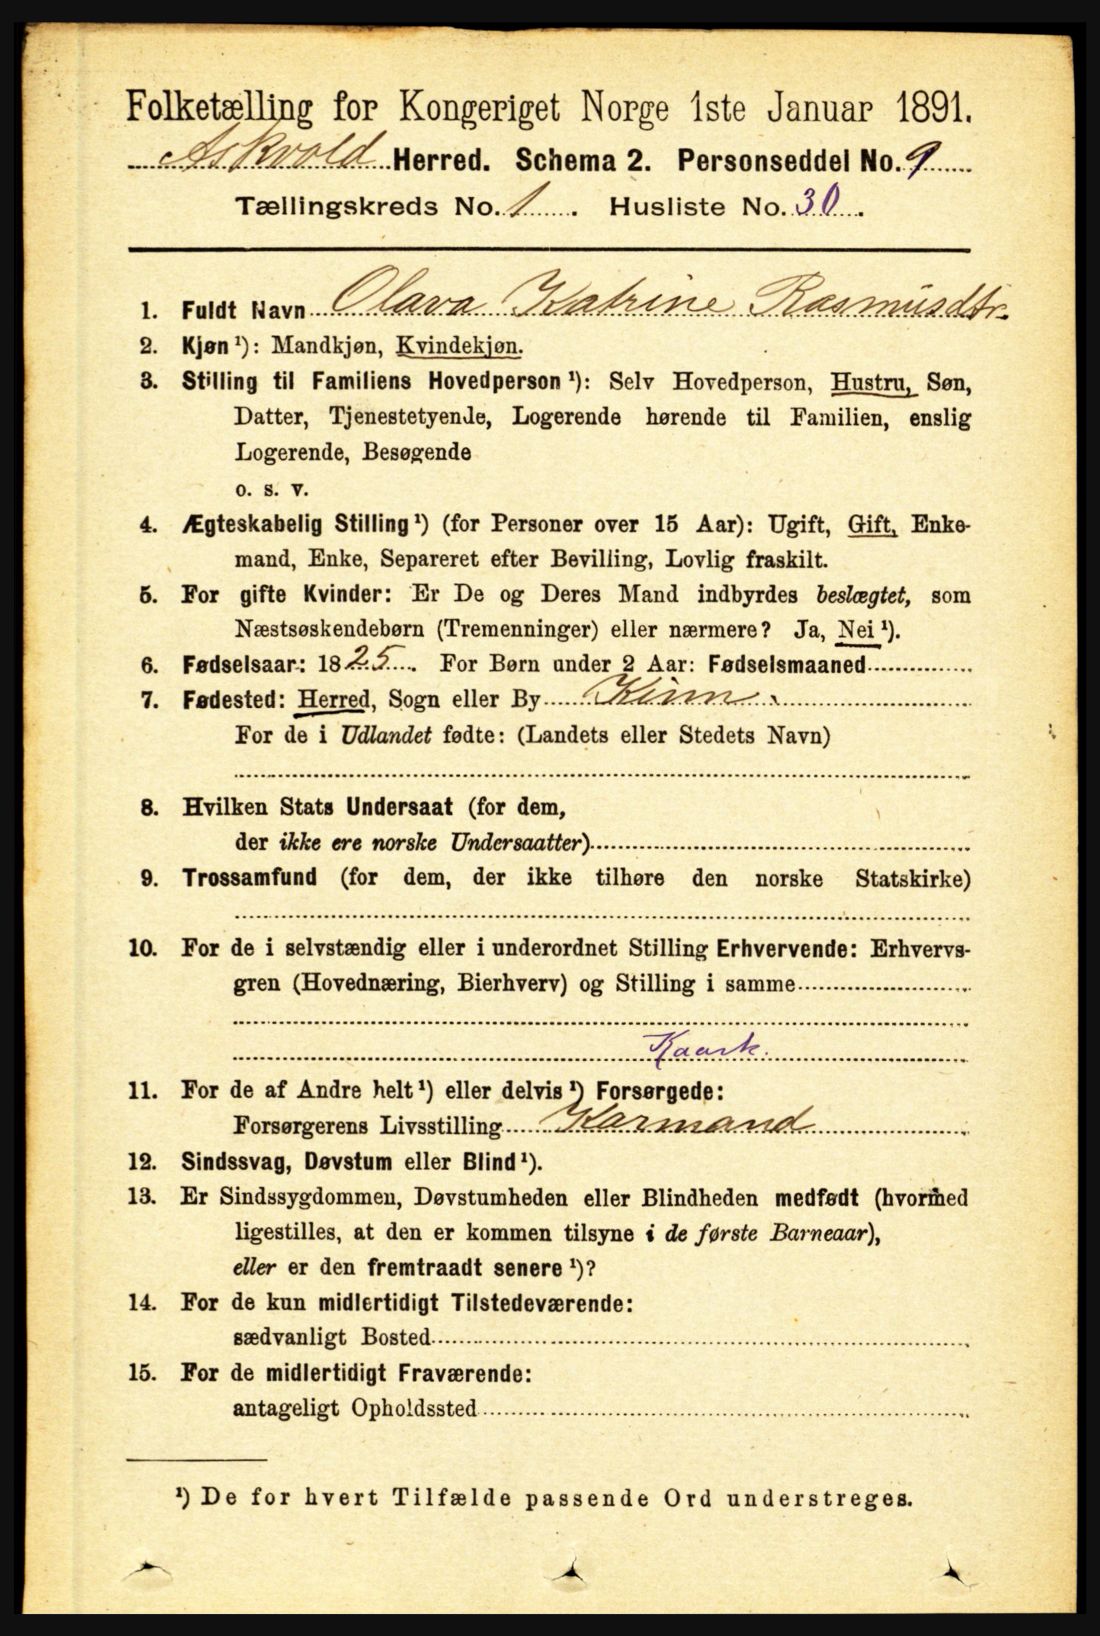 Folketælling for Kongeriget Norge 1ste Januar 1891.
Askvold Herred. Schema 2. Personseddel No. 9
Tællingskreds No. 1. Husliste No. 30.
1. Fuldt Navn Olava Katrine Rasmusdtr.
2. Kjøn¹): Mandkjøn, Kvindekjøn.
3. Stilling til Familiens Hovedperson¹): Selv Hovedperson, Hustru, Søn,
Datter, Tjenestetyende, Logerende hørende til Familien, enslig
Logerende, Besøgende
o. s. v.
4. Ægteskabelig Stilling¹) (for Personer over 15 Aar): Ugift, Gift, Enke-
mand, Enke, Separeret efter Bevilling, Lovlig fraskilt.
5. For gifte Kvinder: Er De og Deres Mand indbyrdes beslægtet, som
Næstsøskendebørn (Tremenninger) eller nærmere? Ja, Nei¹).
6. Fødselsaar: 1825. For Børn under 2 Aar: Fødselsmaaned
7. Fødested: Herred, Sogn eller By Kinn.
For de i Udlandet fødte: (Landets eller Stedets Navn)
8. Hvilken Stats Undersaat (for dem,
der ikke ere norske Undersaatter)
9. Trossamfund (for dem, der ikke tilhøre den norske Statskirke)
10. For de i selvstændig eller i underordnet Stilling Erhvervende: Erhvervs-
gren (Hovednæring, Bierhverv) og Stilling i samme
11. For de af Andre helt¹) eller delvis¹) Forsørgede:
Forsørgerens Livsstilling Karmand
12. Sindssvag, Døvstum eller Blind¹).
13. Er Sindssygdommen, Døvstumheden eller Blindheden medfødt (hvormed
ligestilles, at den er kommen tilsyne i de første Barneaar),
eller er den fremtraadt senere¹)?
14. For de kun midlertidigt Tilstedeværende:
sædvanligt Bosted
15. For de midlertidigt Fraværende:
antageligt Opholdssted
¹) De for hvert Tilfælde passende Ord understreges.